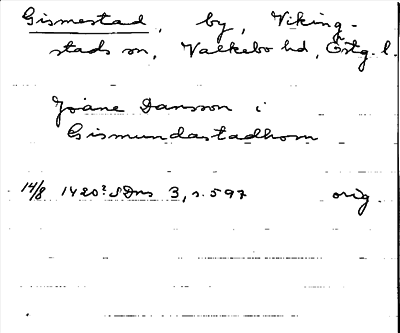 Gismestad, by, Viking-
stads sn, Valkebo hd, Östg. l.
Joane Dansson i
Gismundastadhom
14/8 1420? SDns 3, s. 597 orig.